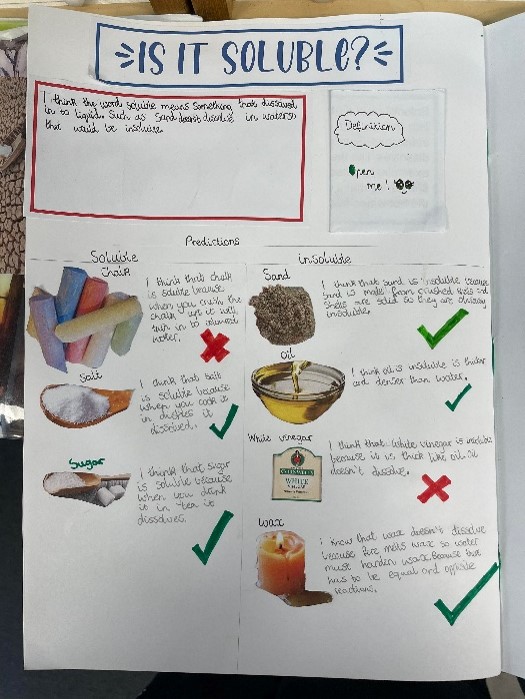 IS IT SOLUBLE?
I think the word soluble means something that dissolved
in to liquid. Such as sand doesn't dissolve in water so
that would be insoluble.
Definition
Open
me!
Predictions
Soluble
Chalk
I think that chalk
is soluble because
when you crush the
chalk up it will
turn in to coloured
water.
Salt
I think that salt
is soluble because
when you cook it
in dishes it
dissolved.
Sugar
I think that sugar
is soluble because
when you drink
it in tea it
dissolves.
insoluble
Sand
I think that sand is insoluble because
sand is made from crushed shells and
shells are solid so they are obviously
insoluble.
Oil
I think oil is insoluble is thicker
and denser than water.
White vinegar
I think that white vinegar is insoluble
because it is thick like oil. Oil
doesn't dissolve.
WHITE
wax
I know that wax doesn't dissolve
because fire melts wax so water
must harden wax. Because there
has to be equal and opposite
reactions.